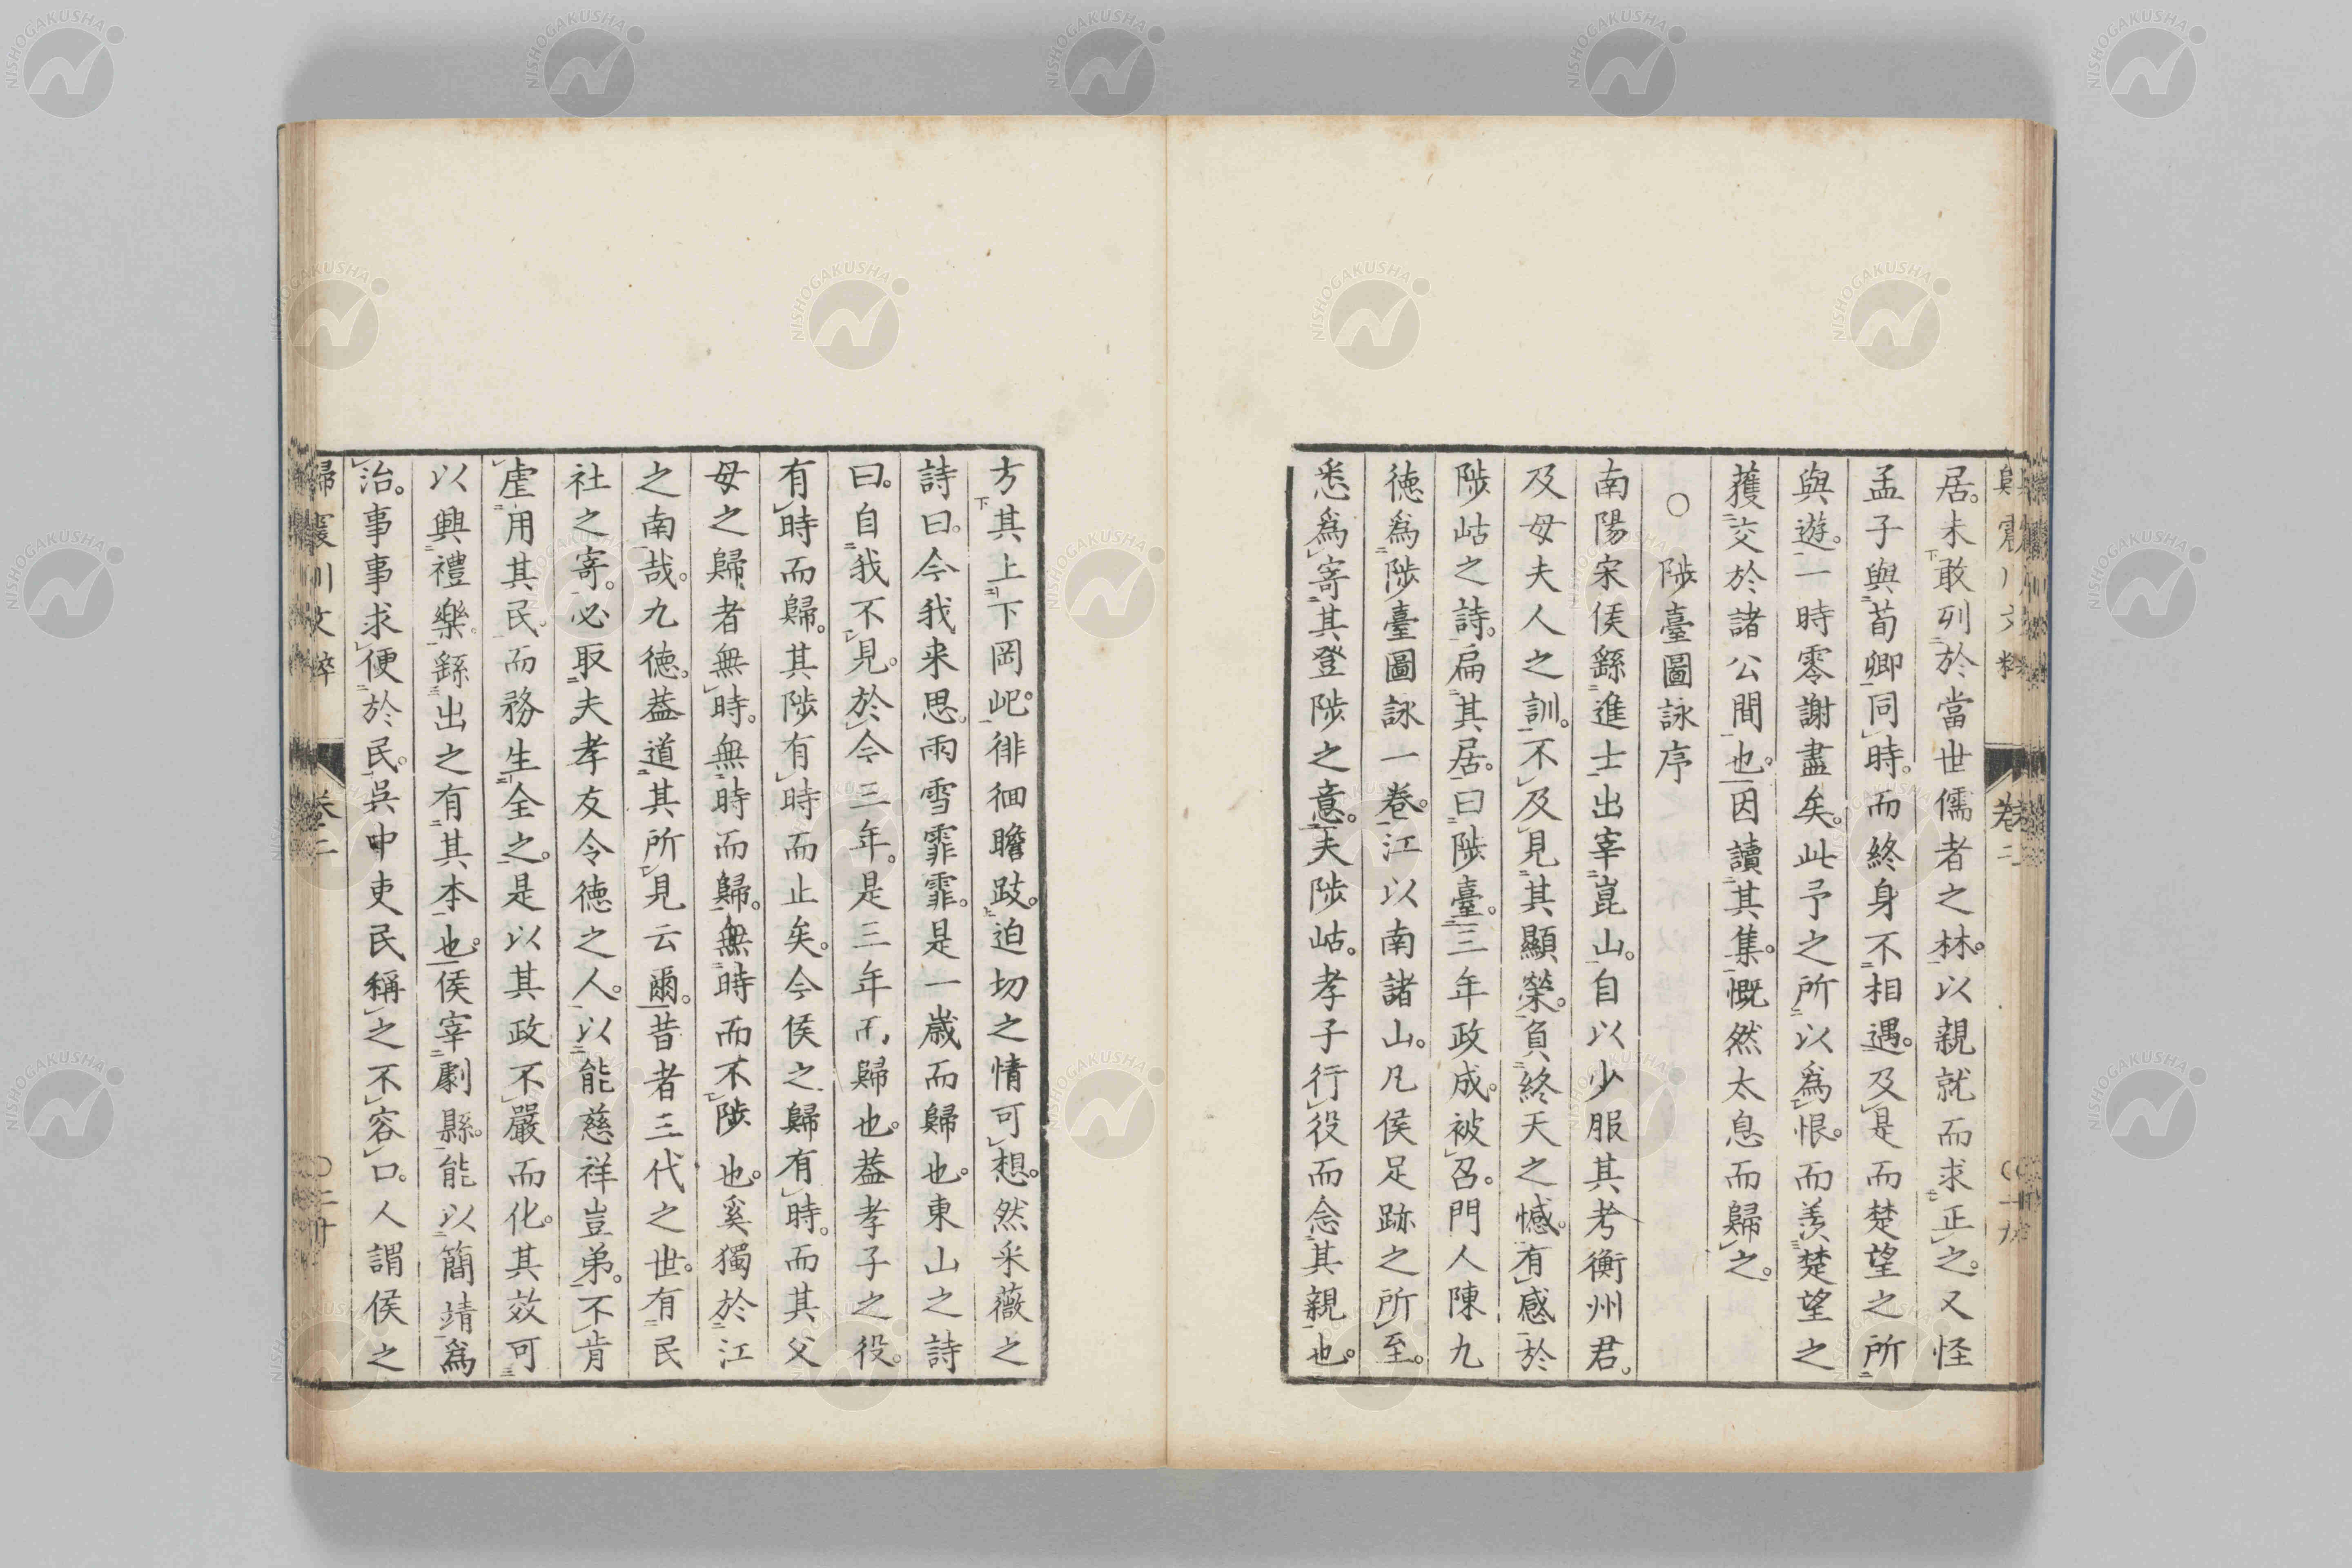 居。未敢列於當世儒者之林。以親就而求正之。又怪
孟子與荀卿同時。而終身不相遇。及是而楚望之所
與遊。一時零謝盡矣。此予之所以為恨。而羨楚望之
獲交於諸公間也。因讀其集。慨然太息而歸之。
○陟臺圖詠序
南陽宋侯繇進士出宰崑山。自以少服其考衡州君。
及母夫人之訓。不及見其顯榮。負終天之憾。有感於
陟岵之詩。扁其居。曰陟臺。三年政成。被召。門人陳九
徳為陟臺圖詠一卷。江以南諸山。凡侯足跡之所至。
悉為寄其登陟之意。夫陟岵。孝子行役而念其親也。
方其上下岡屺。徘徊瞻跂。迫切之情可想。然采薇之
詩曰。今我来思。雨雪霏霏。是一歳而歸也。東山之詩
曰。自我不見。於今三年。是三年而歸也。葢孝子之役。
有時而歸。其陟有時而止矣。今侯之歸有時。而其父
母之歸者無時。無時而歸。無時而不陟也。奚獨於江
之南哉。九徳。葢道其所見云爾。昔者三代之世。有民
社之寄。必取夫孝友令徳之人。以能慈祥豈弟。不肯
虐用其民。而務生全之。是以其政不嚴而化。其效可
以興禮樂。繇出之有其本也。侯宰劇縣。能以簡靖為
治。事事求便於民。吳中吏民稱之不容口。人謂侯之
歸震川文粹 卷二 〇二十